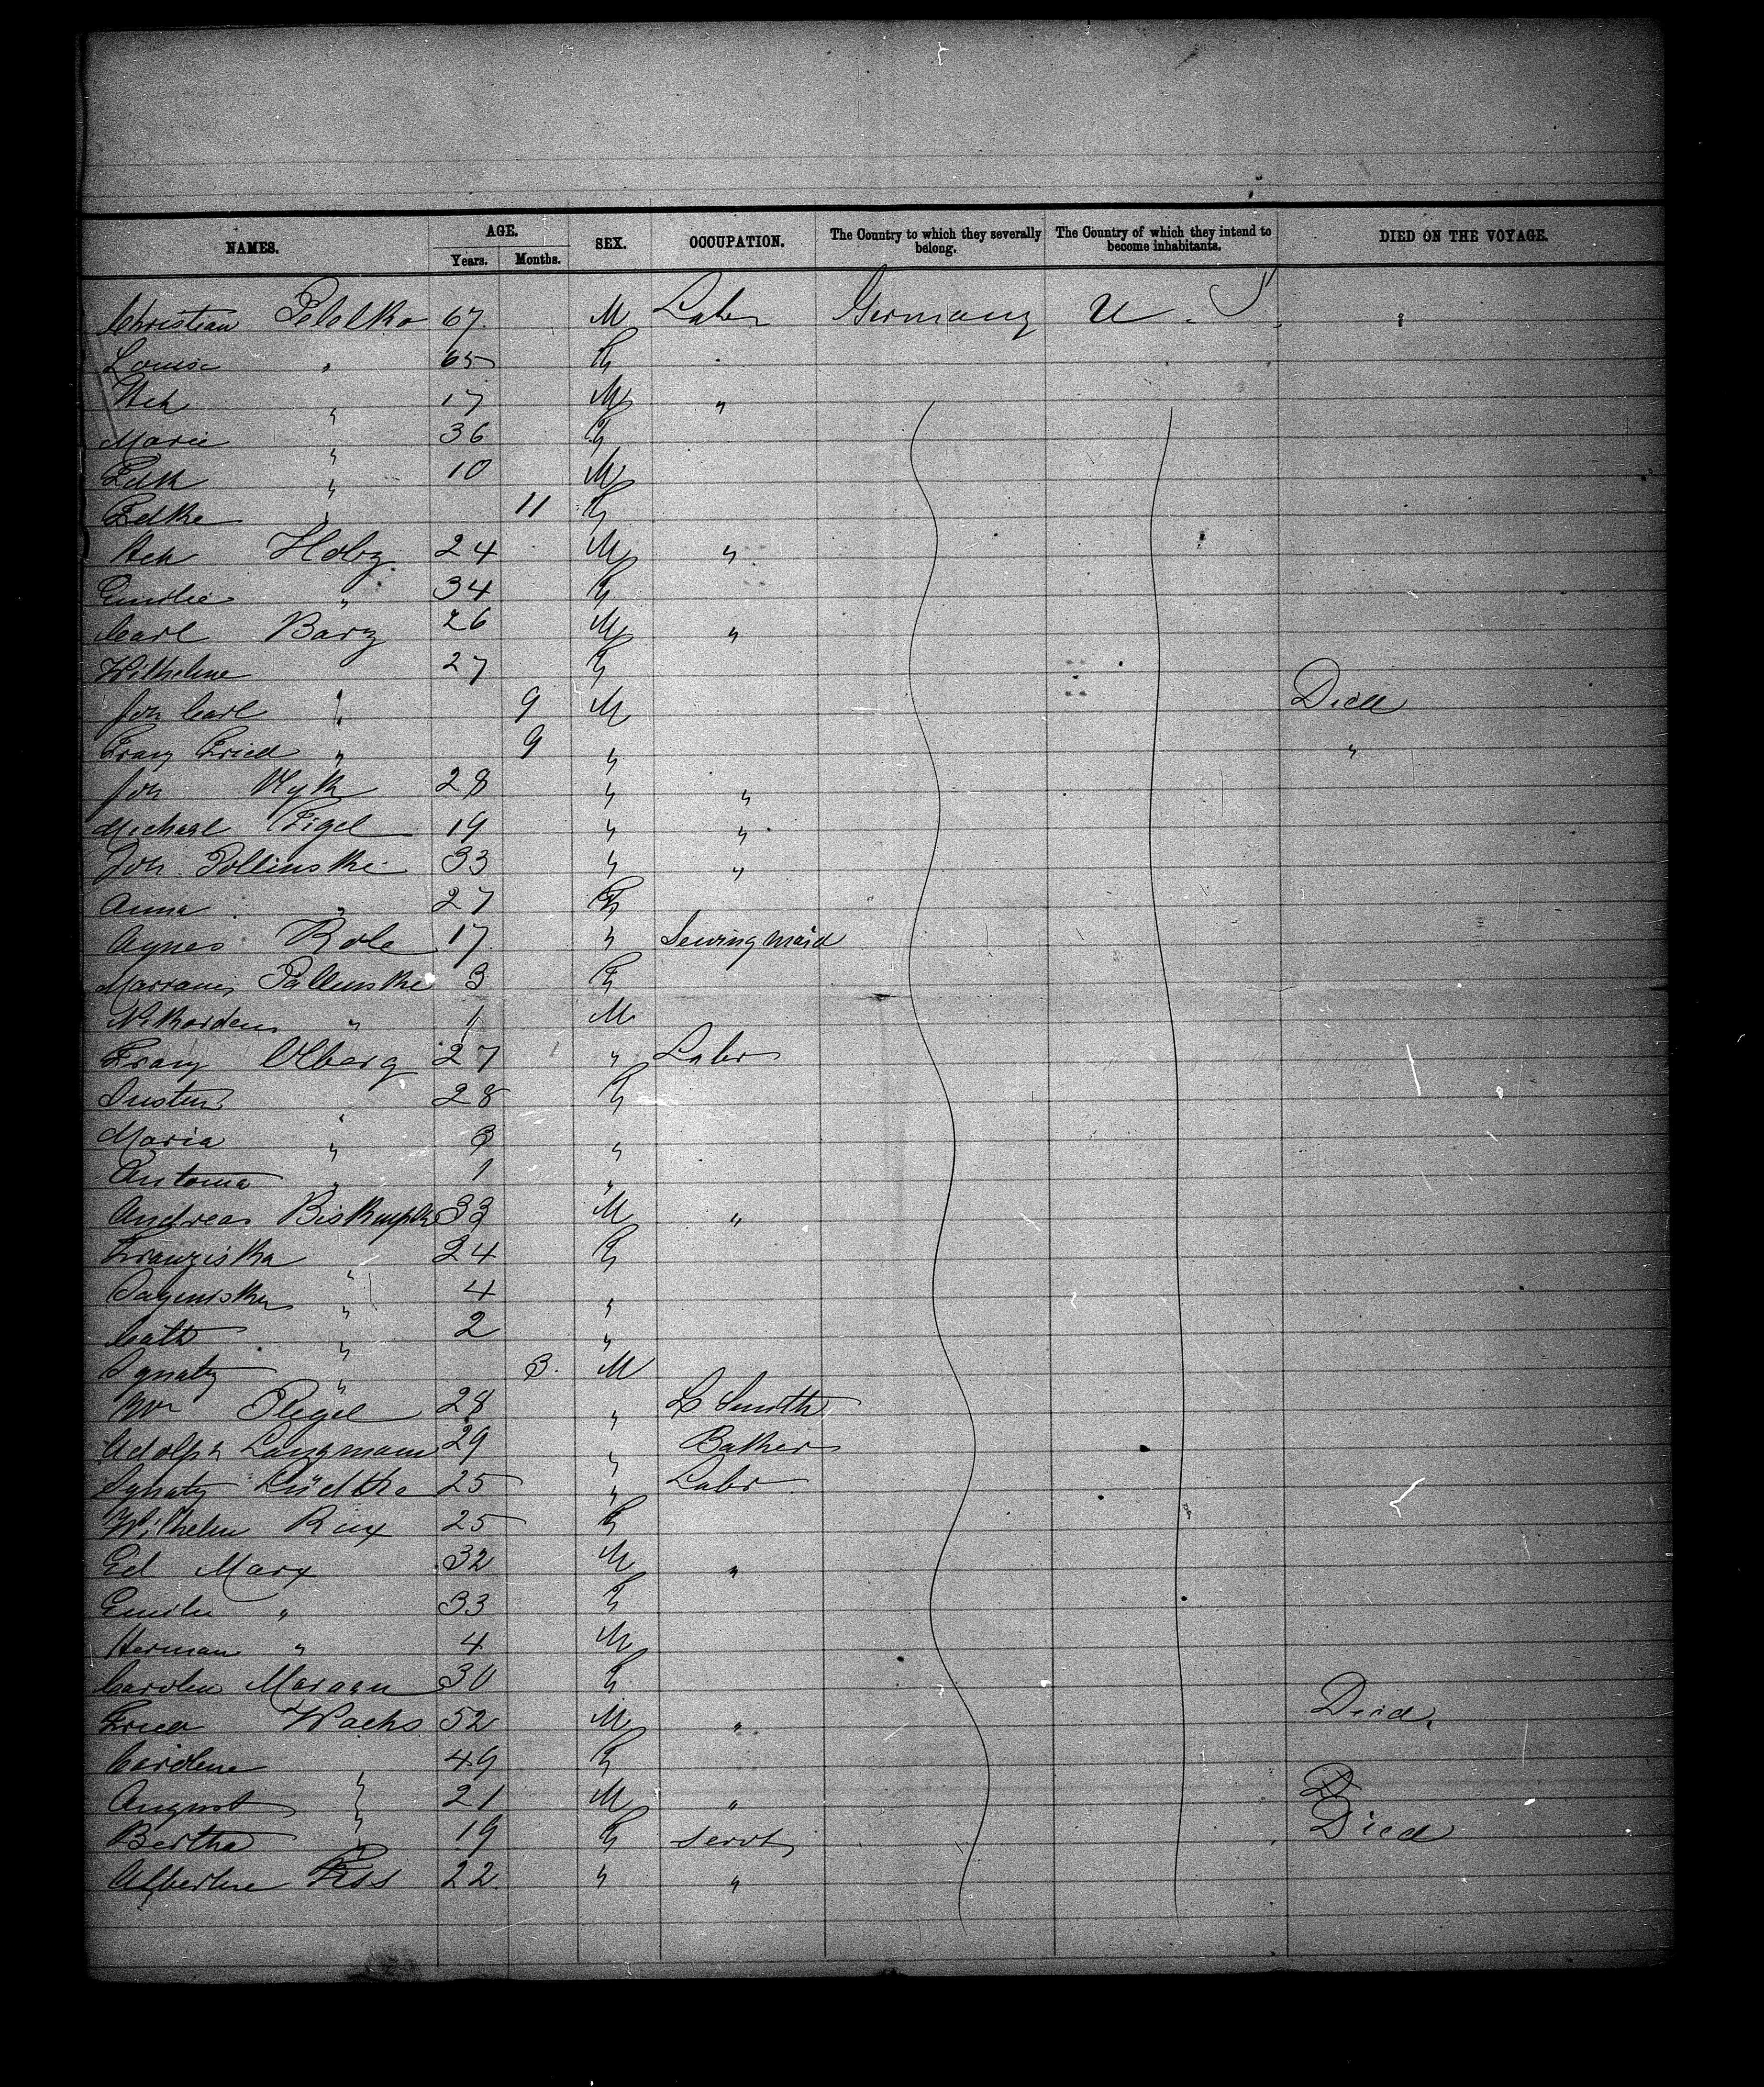 NAMES. AGE. SEX. OCCUPATION. The Country to which they severally belong. The Country of which they intend to become inhabitants. DIED ON THE VOYAGE.
Years. Months.
Christian 67 M Labr Germany U. S
Louise " 65 F
Hch " 17 M "
Marie " 36 F
Fdk " 10 M
Fdke " 11 F
Hch Holz 24 M "
Emilie " 34 F
Carl Barz 26 M "
Wilhelme 27 F
Joh Carl " 9 M Died
Franz Fried " 9 " "
Joh 28 " "
Michael Figel 19 " "
Joh Pollinski 33 " "
Anna " 27 F
Agnes Role 17 " Sewing maid
Pallinski 3 F
" 1 M
Franz Olberg 27 " Labr
28 F
Maria " 3 "
Antonia " 1 "
Andreas 33 M "
Franziska " 24 F
" 4 "
Cath " 2 "
Ignatz " 3. M
Wm Plegel 28 " L Smith
Adolph Langmann 29 " Baker
Ignatz Lüdtke 25 " Labr
Wilhelm Rux 25 F
Ed Marx 32 M "
Emilie " 33 F
Herman " 4 M
Carolin 30 F
Fried Wachs 52 M " Died.
Carolene " 49 F
August " 21 M " D
Bertha " 19 F Servt Died
Albertine 22. " "